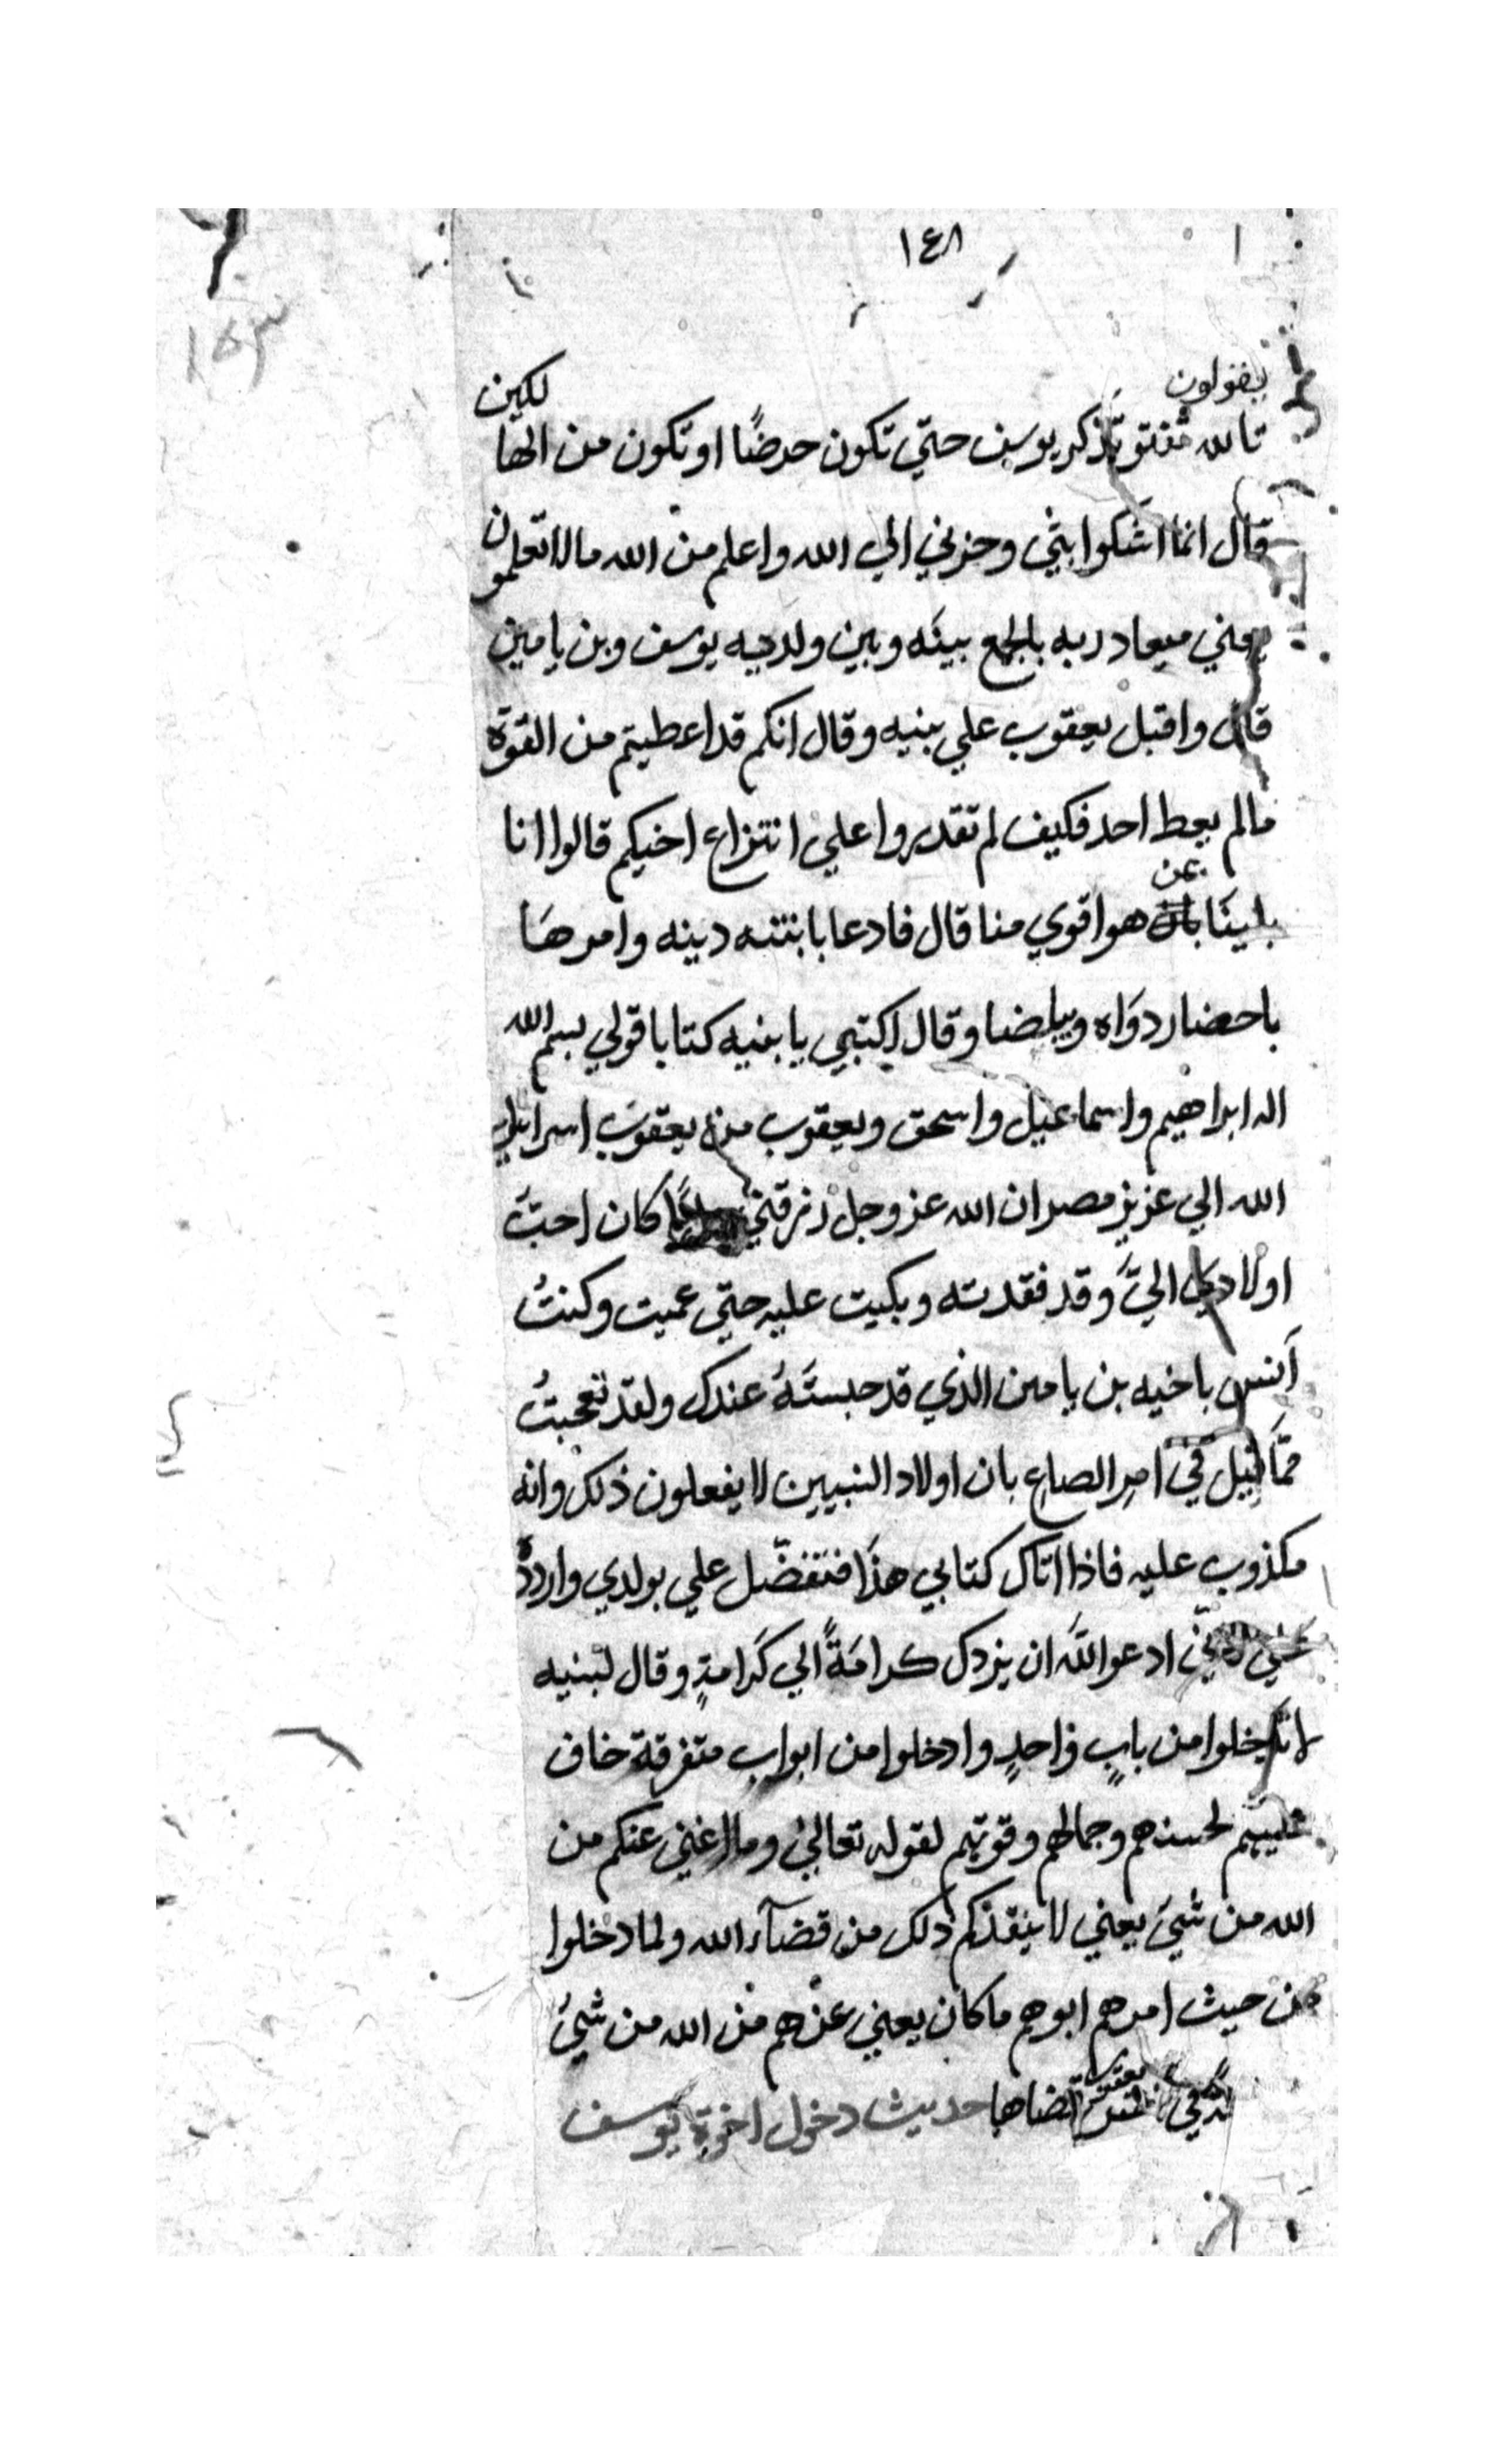 ١٤٨
١٤٣
يقولون
تالله تفتو تذكر يوسف حتي تكون حرضًا او تكون من الهالكين
قال انما اشكوا بثي وحزني الي الله واعلم من الله ما لا تعلمون
يعني ميعاد ربه بالجمع بينه وبين ولديه يوسف وبن يامين
قال واقبل يعقوب علي بنيه وقال انكم قد اعطيتم من القوة
مالم يعط احد فكيف لم تقدروا علي انتزاع اخيكم قالوا انا
بلينا بمن هو اقوي منا قال فادعا بابنته دينه وامرها
باحضار دواه وبيلضا وقال اكتبي يا بنيه كتابا قولي بسم الله
اله ابراهيم واسماعيل واسحق ويعقوب من يعقوب اسرايل
الله الي عزيز مصر ان الله عز وجل رزقني كان احب
اولادي اليَّ وقد فقدته وبكيت عليه حتي عميت وكنتُ
آنس باخيه بن يامين الذي قد حبستهُ عندك ولقد تعجبتُ
ممَّا قيل في امر الصاع بان اولاد النبيين لا يفعلون ذلك وانه
مكذوب عليه فاذا اتاك كتابي هذا فتفضّل علي بولدي واردده
ادعوا الله ان يزدك كرامةً الي كرامةٍ وقال لبنيه
لا تدخلوا من بابٍ واحدٍ وادخلوا من ابواب متفرقة خاف
عليهم لحسنهم وجمالهم وقوتهم لقوله تعالي وما اغني عنكم من
الله من شيء يعني لا ينقذكم ذلك من قضآء الله ولما دخلوا
من حيث امرهم ابوهم ما كان يغني عنهم من الله من شيء
في نفس يعقوب قضاها حديث دخول اخوة يوسف